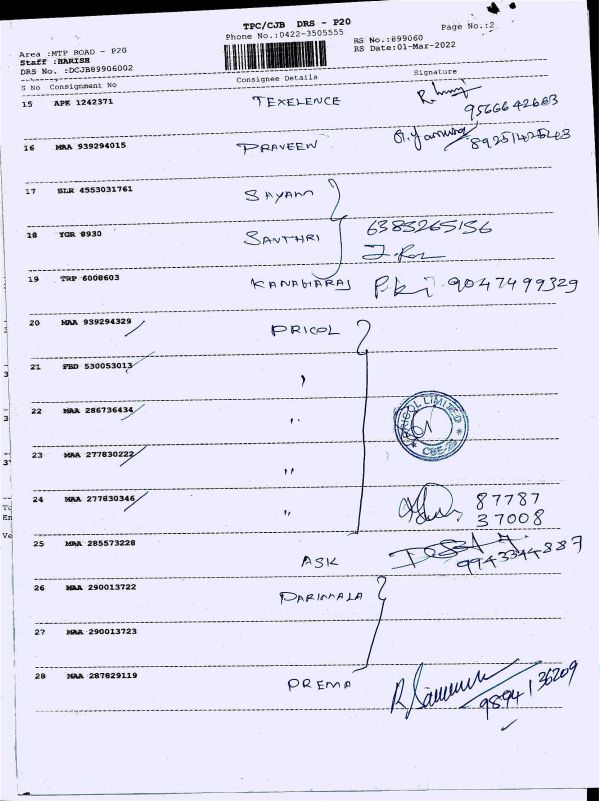 TPC/CJB DRS - P20
Page No.:2
Phone No.:0422-3505555
RS No.:899060
Area :MTP ROAD - P20
RS Date:01-Mar-2022
Staff :HARISH
DRS No. :DCJB89906002
S No Consignment No Consignee Details Signature
15 APK 1242371 TEXELENCE
9566642663
16 MAA 939294015 PRAVEEN
89251425263
17 BLR 4553031761 SAYAM
18 YGR 8930 SANTHRI 6385265156
19 TRP 6008603 KANAGARAJ 9047499329
20 MAA 939294329 PRICOL
21 FBD 530053013 "
22 MAA 286736434 "
PRICOL LIMITED
CBE-20
23 MAA 277830222 "
24 MAA 277830346 " 87787
37008
25 MAA 285573228 ASK
9943344887
26 MAA 290013722 PARIMALA
27 MAA 290013723
28 MAA 287829119 PREMA
9894136209